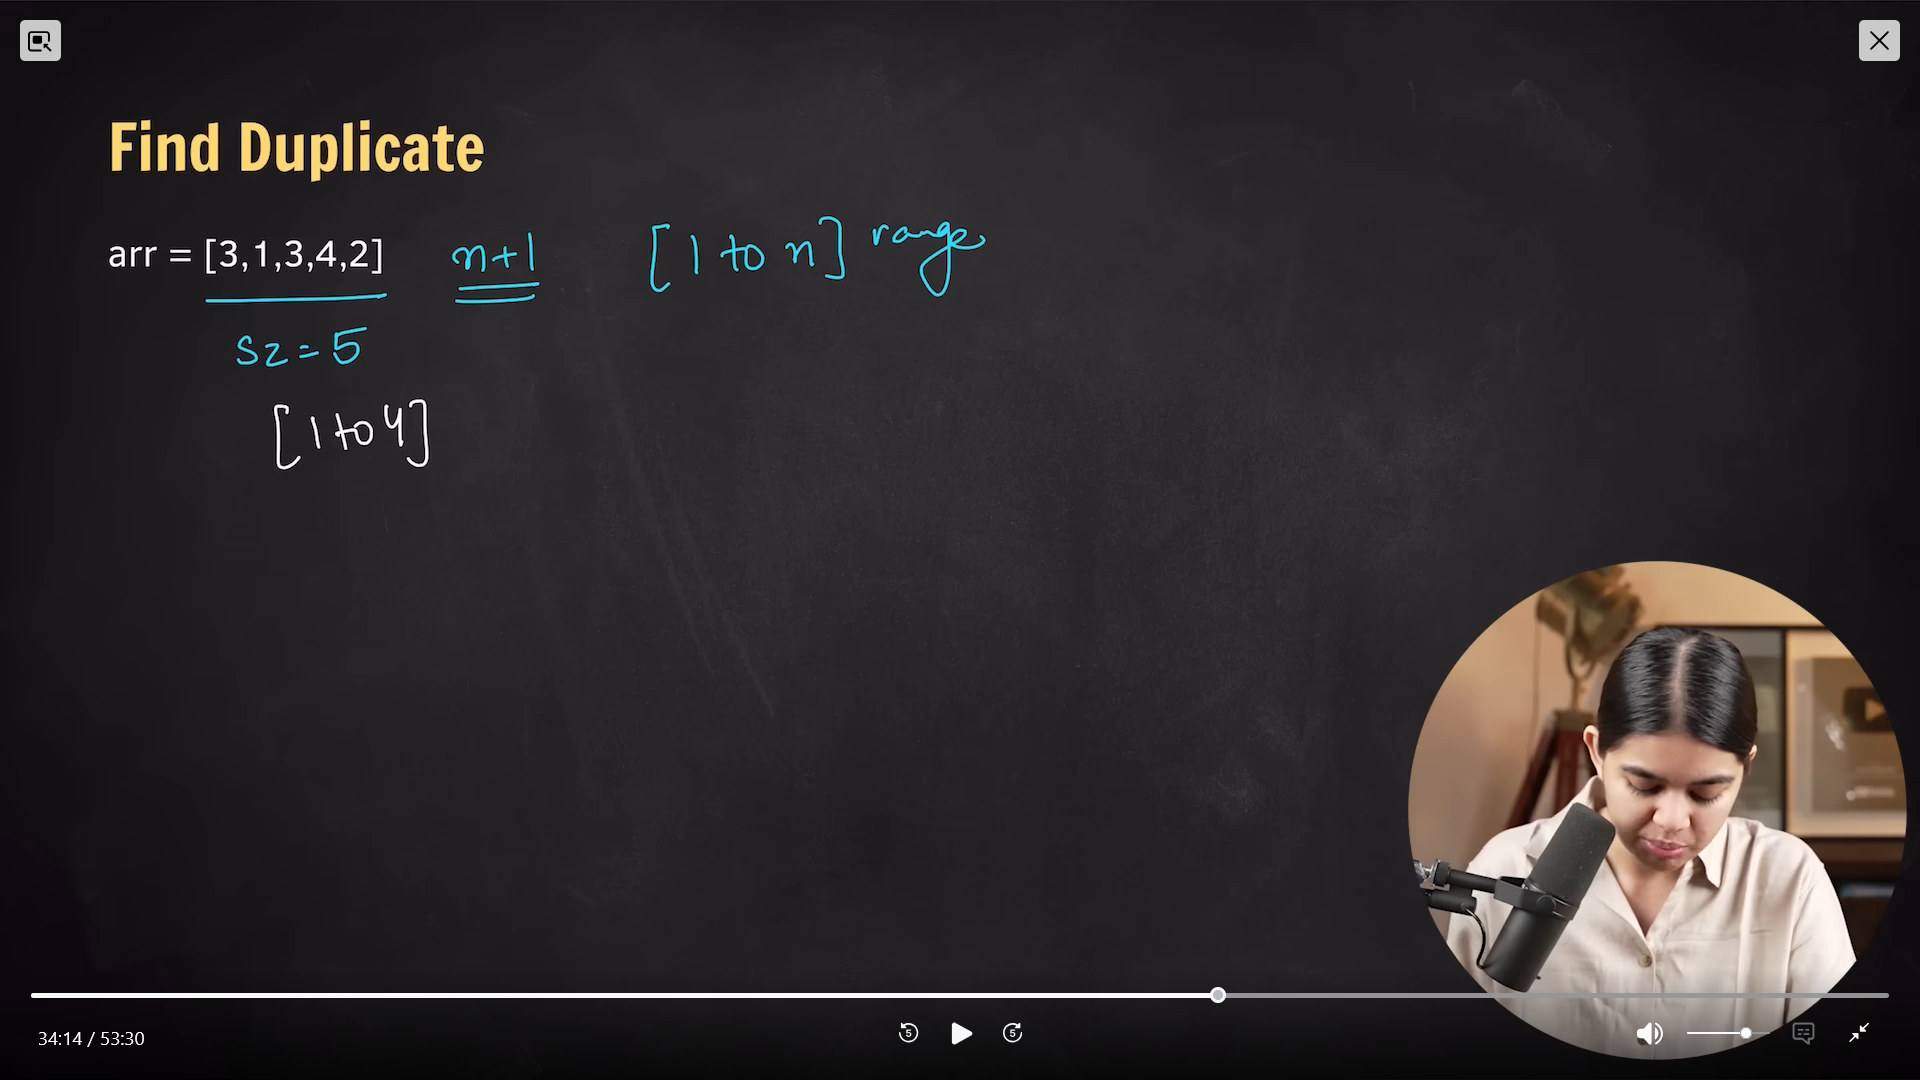 Find Duplicate
arr = [3,1,3,4,2] n+1 [1 to n] range
sz = 5
[1 to 4]
34:14 / 53:30
5 5